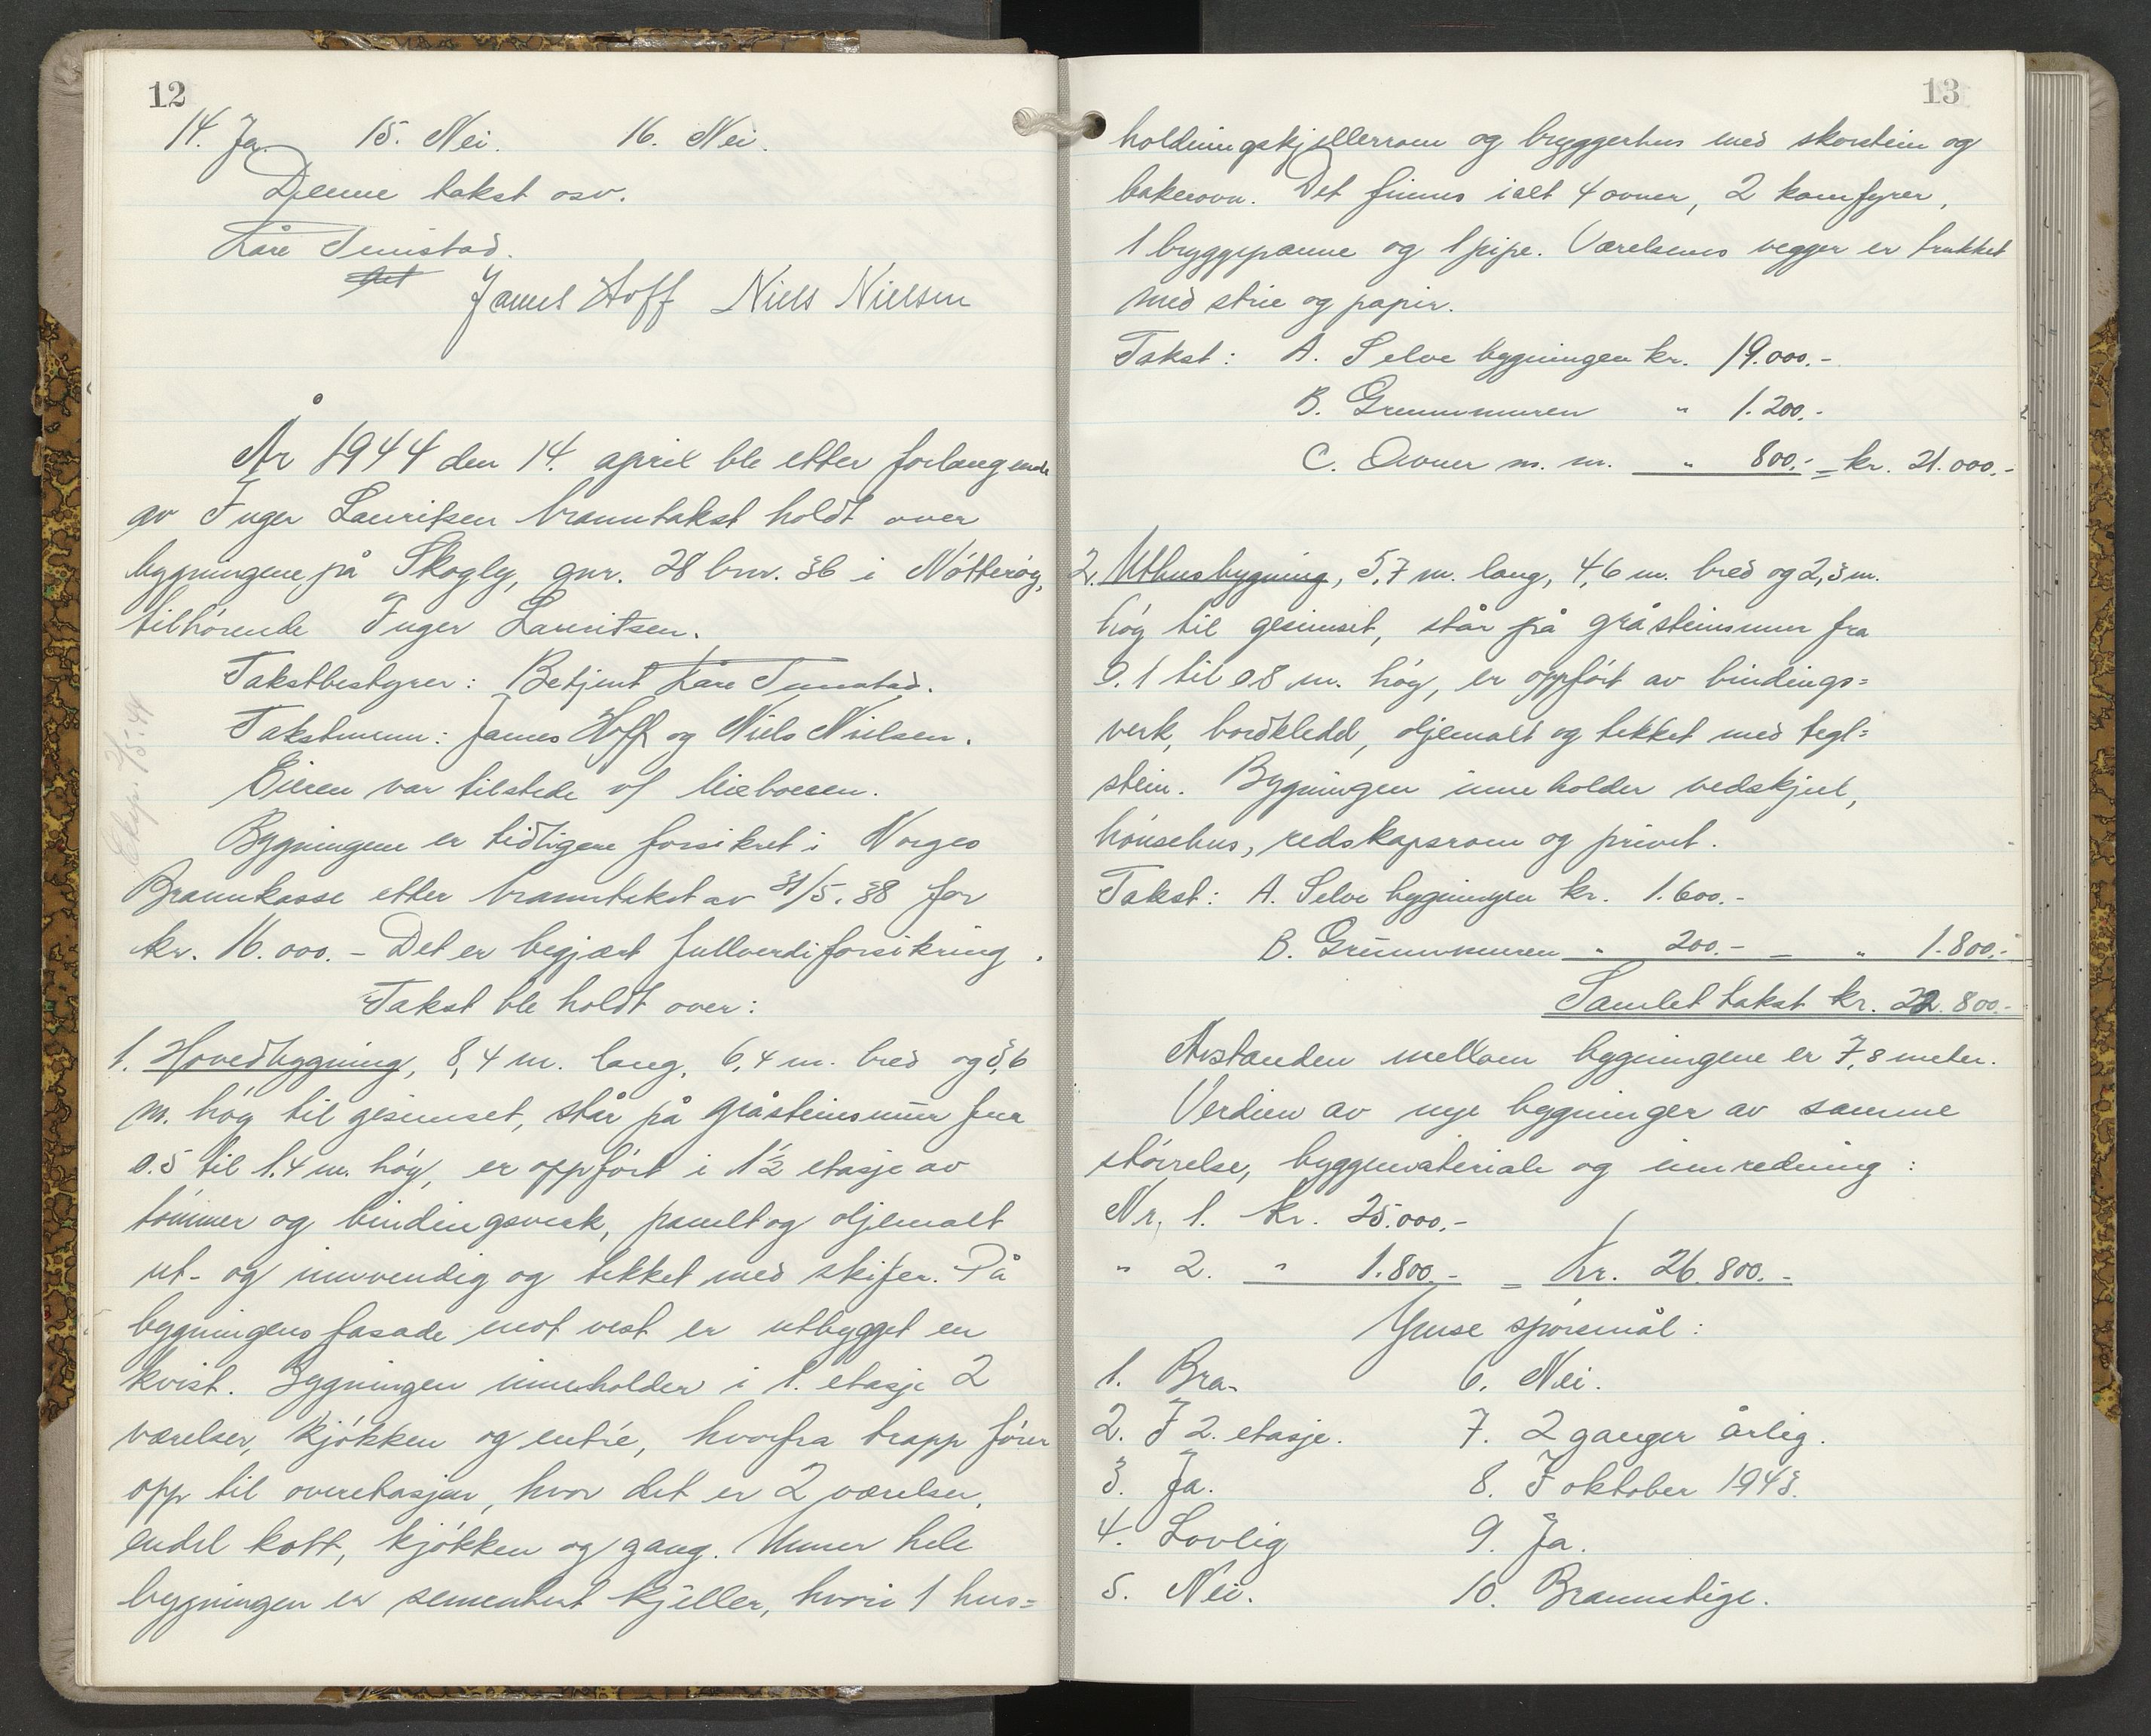 12
14. Ja. 15. Nei. 16. Nei.
Denne takst osv.
Kåre Tunstad.
James Hoff Niels Nielsen
År 1944 den 14. april ble etter forlangende
av Inger Lauritsen branntakst holdt over
bygningene på Skogly, gnr. 28 bnr. 36 i Nøtterøy,
tilhørende Inger Lauritsen.
Takstbestyrer: Betjent Kåre Tunstad.
Takstmenn: James Hoff og Niels Nielsen.
Eieren var tilstede v/
Bygningene er tidligere forsikret i Norges
Brannkasse etter branntakst av 31/5. 38 for
kr. 16.000.- Det er begjært fullverdiforsikring.
Takst ble holdt over:
1. Hovedbygning, 8,4 m. lang, 6,4 m. bred og 3,6
m. høy til gesimset, står på gråsteinsmur fra
0.5 til 1.4 m. høy, er oppført i 1½ etasje av
tømmer og bindingsverk, panelt og oljemalt
ut- og innvendig og tekket med skifer. På
bygningens fasade mot vest er utbygget en
kvist. Bygningen inneholder i 1. etasje 2
værelser, kjøkken og entré, hvorfra trapp fører
opp til overetasjen, hvor det er 2 værelser,
endel kott, kjøkken og gang. Unner hele
bygningen er sementert kjeller, hvori 1 hus=
Eksp. 2/5-44
13
holdningskjellerrom og bryggerhus med skorstein og
bakerovn. Det finnes ialt 4 ovner, 2 komfyrer,
1 bryggepanne og 1 pipe. Værelsenes vegger er trukket
med strie og papir.
Takst: A. Selve bygningen kr. 19.000.-
B. Grunnmuren " 1.200.-
C. Ovner m. m. " 800.- = kr. 21.000.-
2. Uthusbygning, 5,7 m. lang, 4,6 m. bred og 2,3 m.
høy til gesimset, står på gråsteinsmur fra
0.1 til 0.8 m. høy, er oppført av bindings=
verk, bordkledd, oljemalt og tekket med tegl=
stein. Bygningen inneholder vedskjul,
hønsehus, redskapsrom og privet.
Takst: A. Selve bygningen kr. 1.600.-
B. Grunnmuren " 200.- = " 1.800.-
Samlet takst kr. 22.800.-
Avstanden mellom bygningene er 7,8 meter.
Verdien av nye bygninger av samme
størrelse, byggemateriale og innredning:
Nr. 1. kr. 25.000.-
" 2. " 1.800.- = kr. 26.800.-
Ymse spørsmål:
1. Bra. 6. Nei.
2. I 2. etasje. 7. 2 ganger årlig.
3. Ja. 8. I oktober 1943.
4. Lovlig 9. Ja.
5. Nei. 10. Brannstige.